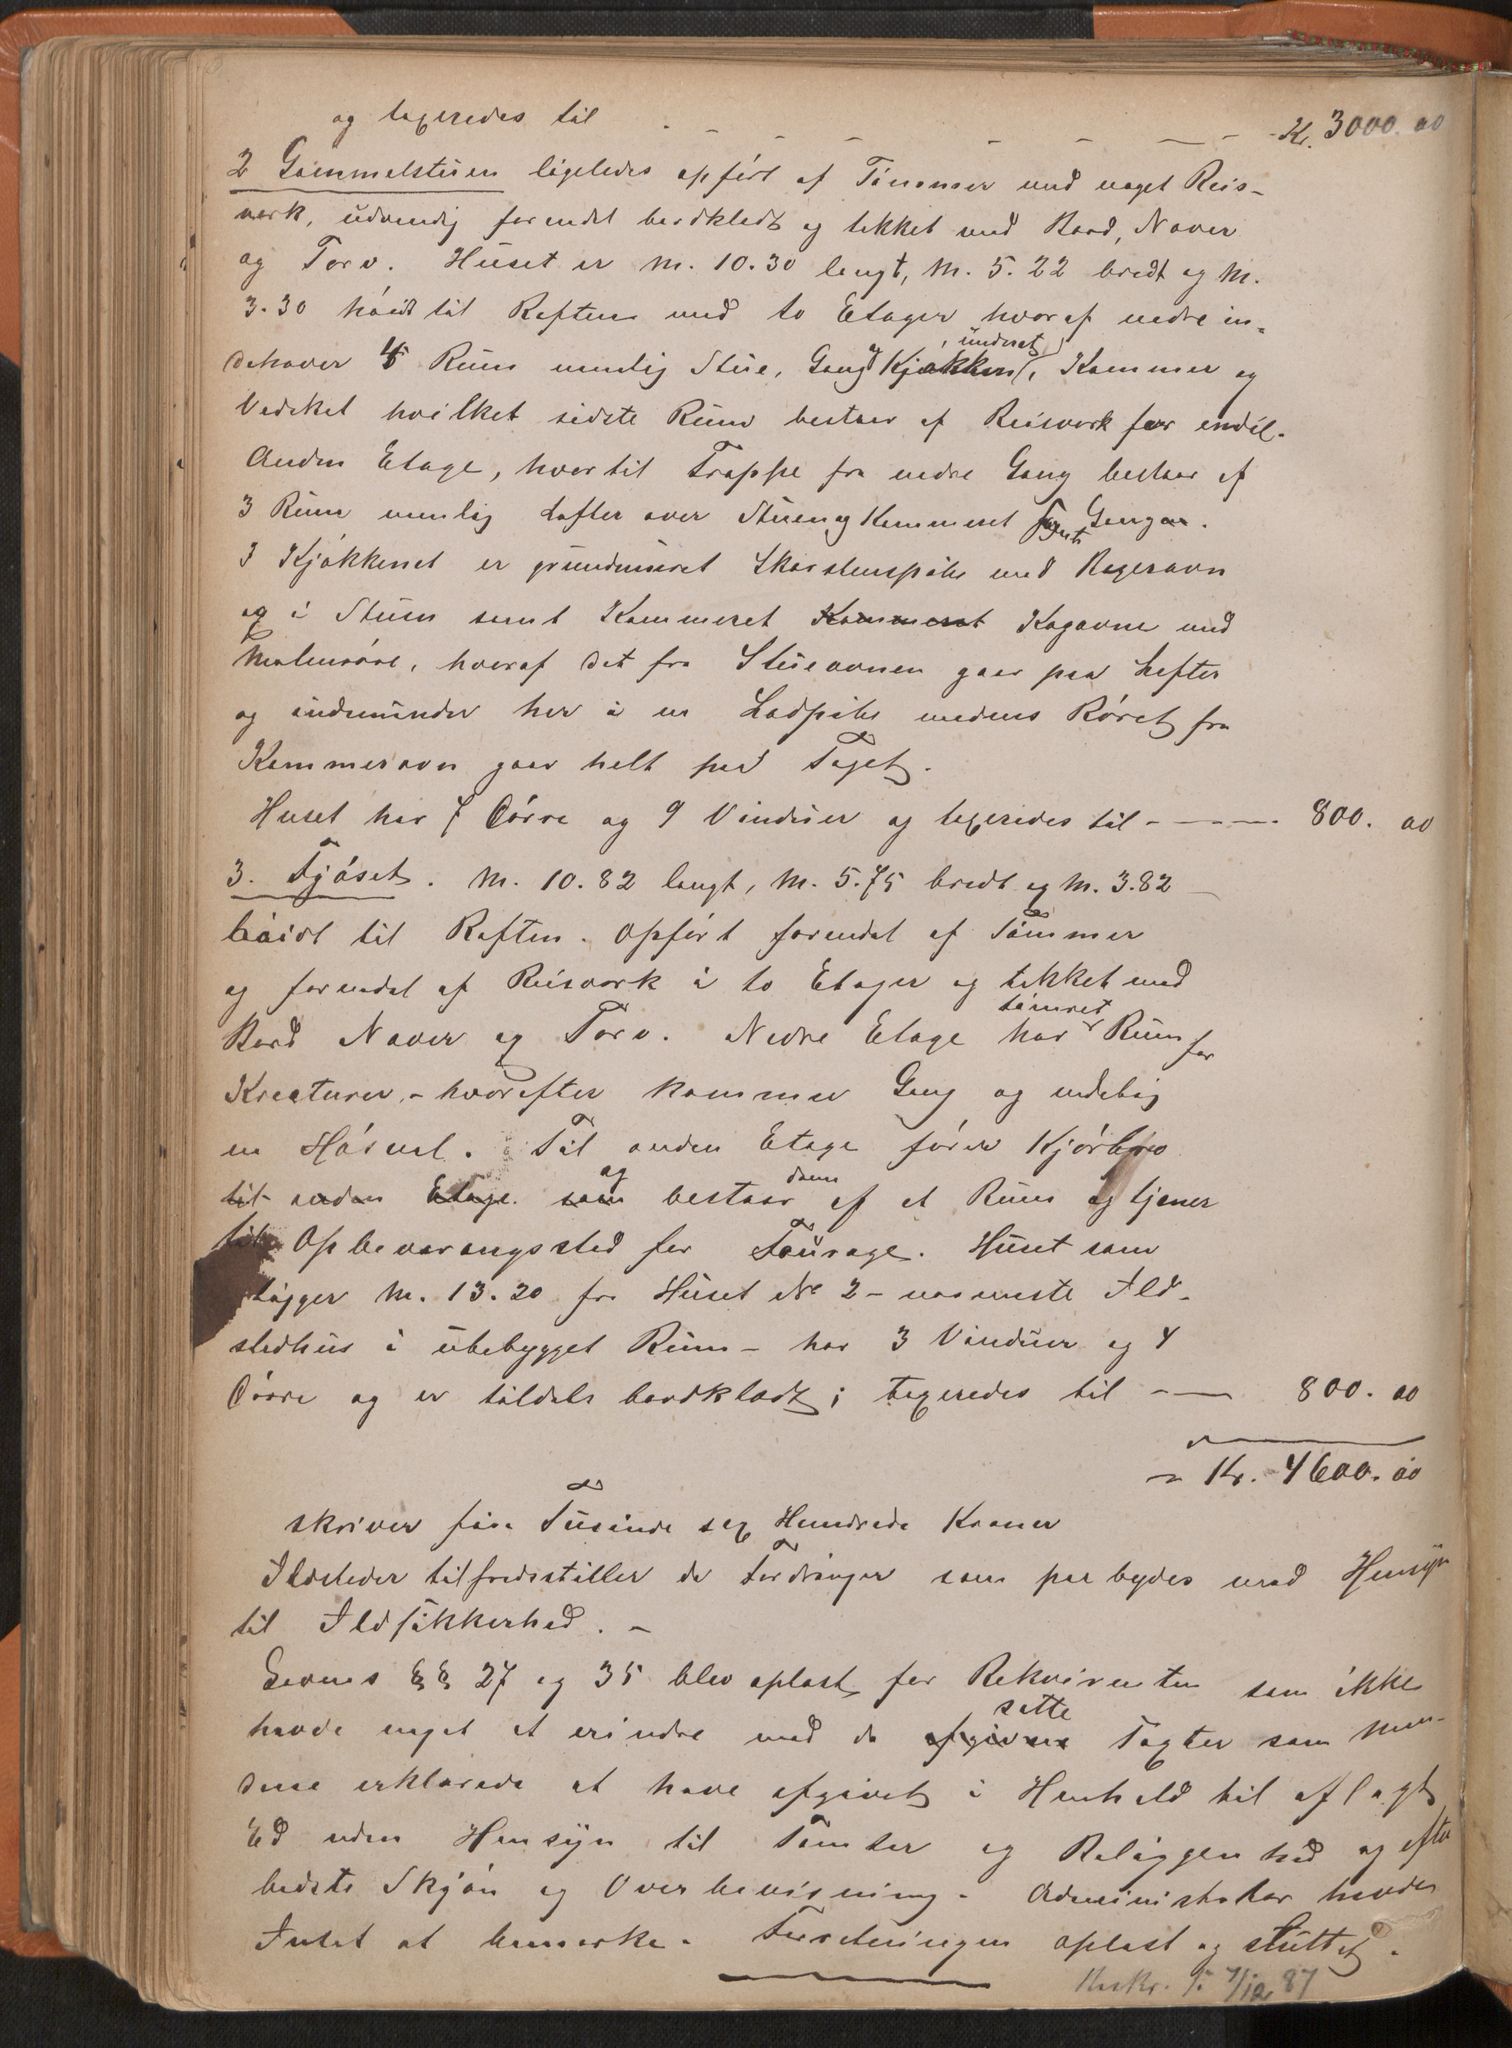 og taxeredes til - - - - - - Kr. 3000. 00
2 Gammelstuen ligeledes opført af Tømmer med noget Reis-
verk, udvendig forendel bordklædt og tekket med Bord, Næver
og Torv. Huset er M. 10.30 langt, M. 5.22 bredt og M.
3.30 høidt til Raften med to Etager hvoraf nedre in-
dehaver 5 Rum nemlig Stue, Gang og Kjøkken, Kammer og
Vedskot hvilket sidste Rum bestaar af Reisverk for endel.
Anden Etage, hvortil Trappe fra nedre Gang bestaar af
3 Rum nemlig Lofter over Stuen og Kammeret samt Gangen.
I Kjøkkenet er grundmuret Skorstenspibe med Bagerovn
og i Stuen samt Kammeret Kammeret Kogovne med
Malmrøre, hvoraf det fra Stueovnen gaar paa Loftet
og indmunder her i en Ladpibe medens Røret fra
Kammerovn gaar helt paa Taget.
Huset har 7 Dørre og 9 Vinduer og taxeredes til - - - 800. 00
3. Fjøset. M. 10.82 langt, M. 5.75 bredt og M. 3.82
høidt til Raften. Opført forendel af Tømmer
og forendel af Reisverk i to Etager og tækket med
Bord Næver og Torv. Nedre Etage har tømret Rum for
Kreaturer, - hvorefter kommer Gang og endelig
en Høsval. Til anden Etage fører Kjørbro
til anden Etage som og bestaar dem af et Rum og tjener
til Opbevaringssted for Fourage. Huset som
ligger M. 13.20 fra Huset No 2 - nærmeste Ild-
stedhus i ubebygget Rum - har 3 Vinduer og 4
Dørre og er tildels bordklædt; taxeredes til - - 800. 00
Kr. 4600. 00
skriver fire Tusinde sex Hundrede Kroner
Ildsteder tilfredsstiller de Fordringer som paabydes med Hensyn
til Ildsikkerhed. -
Lovens §§ 27 og 35 blev oplæst for Rekvirenten som ikke
havde noget at erindre mod de afgivne satte Taxter som Mæn-
dene erklærede at have afgivet i Henhold til aflagt
Ed uden Hensyn til Tomter og Beliggenhed og efter
bedste Skjøn og Overbevisning. Administrator havde
Intet at bemærke. Forretningen oplæst og sluttet.
7/12 87